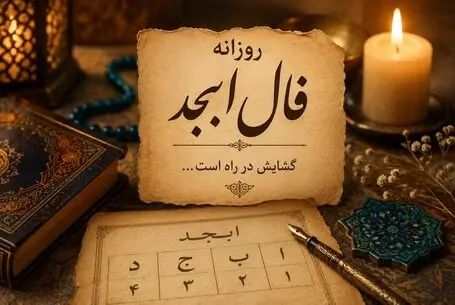 روزانه
فال ابجد
گشایش در راه است...
ابجد
ا ب ج د
۱ ۲ ۳ ۴